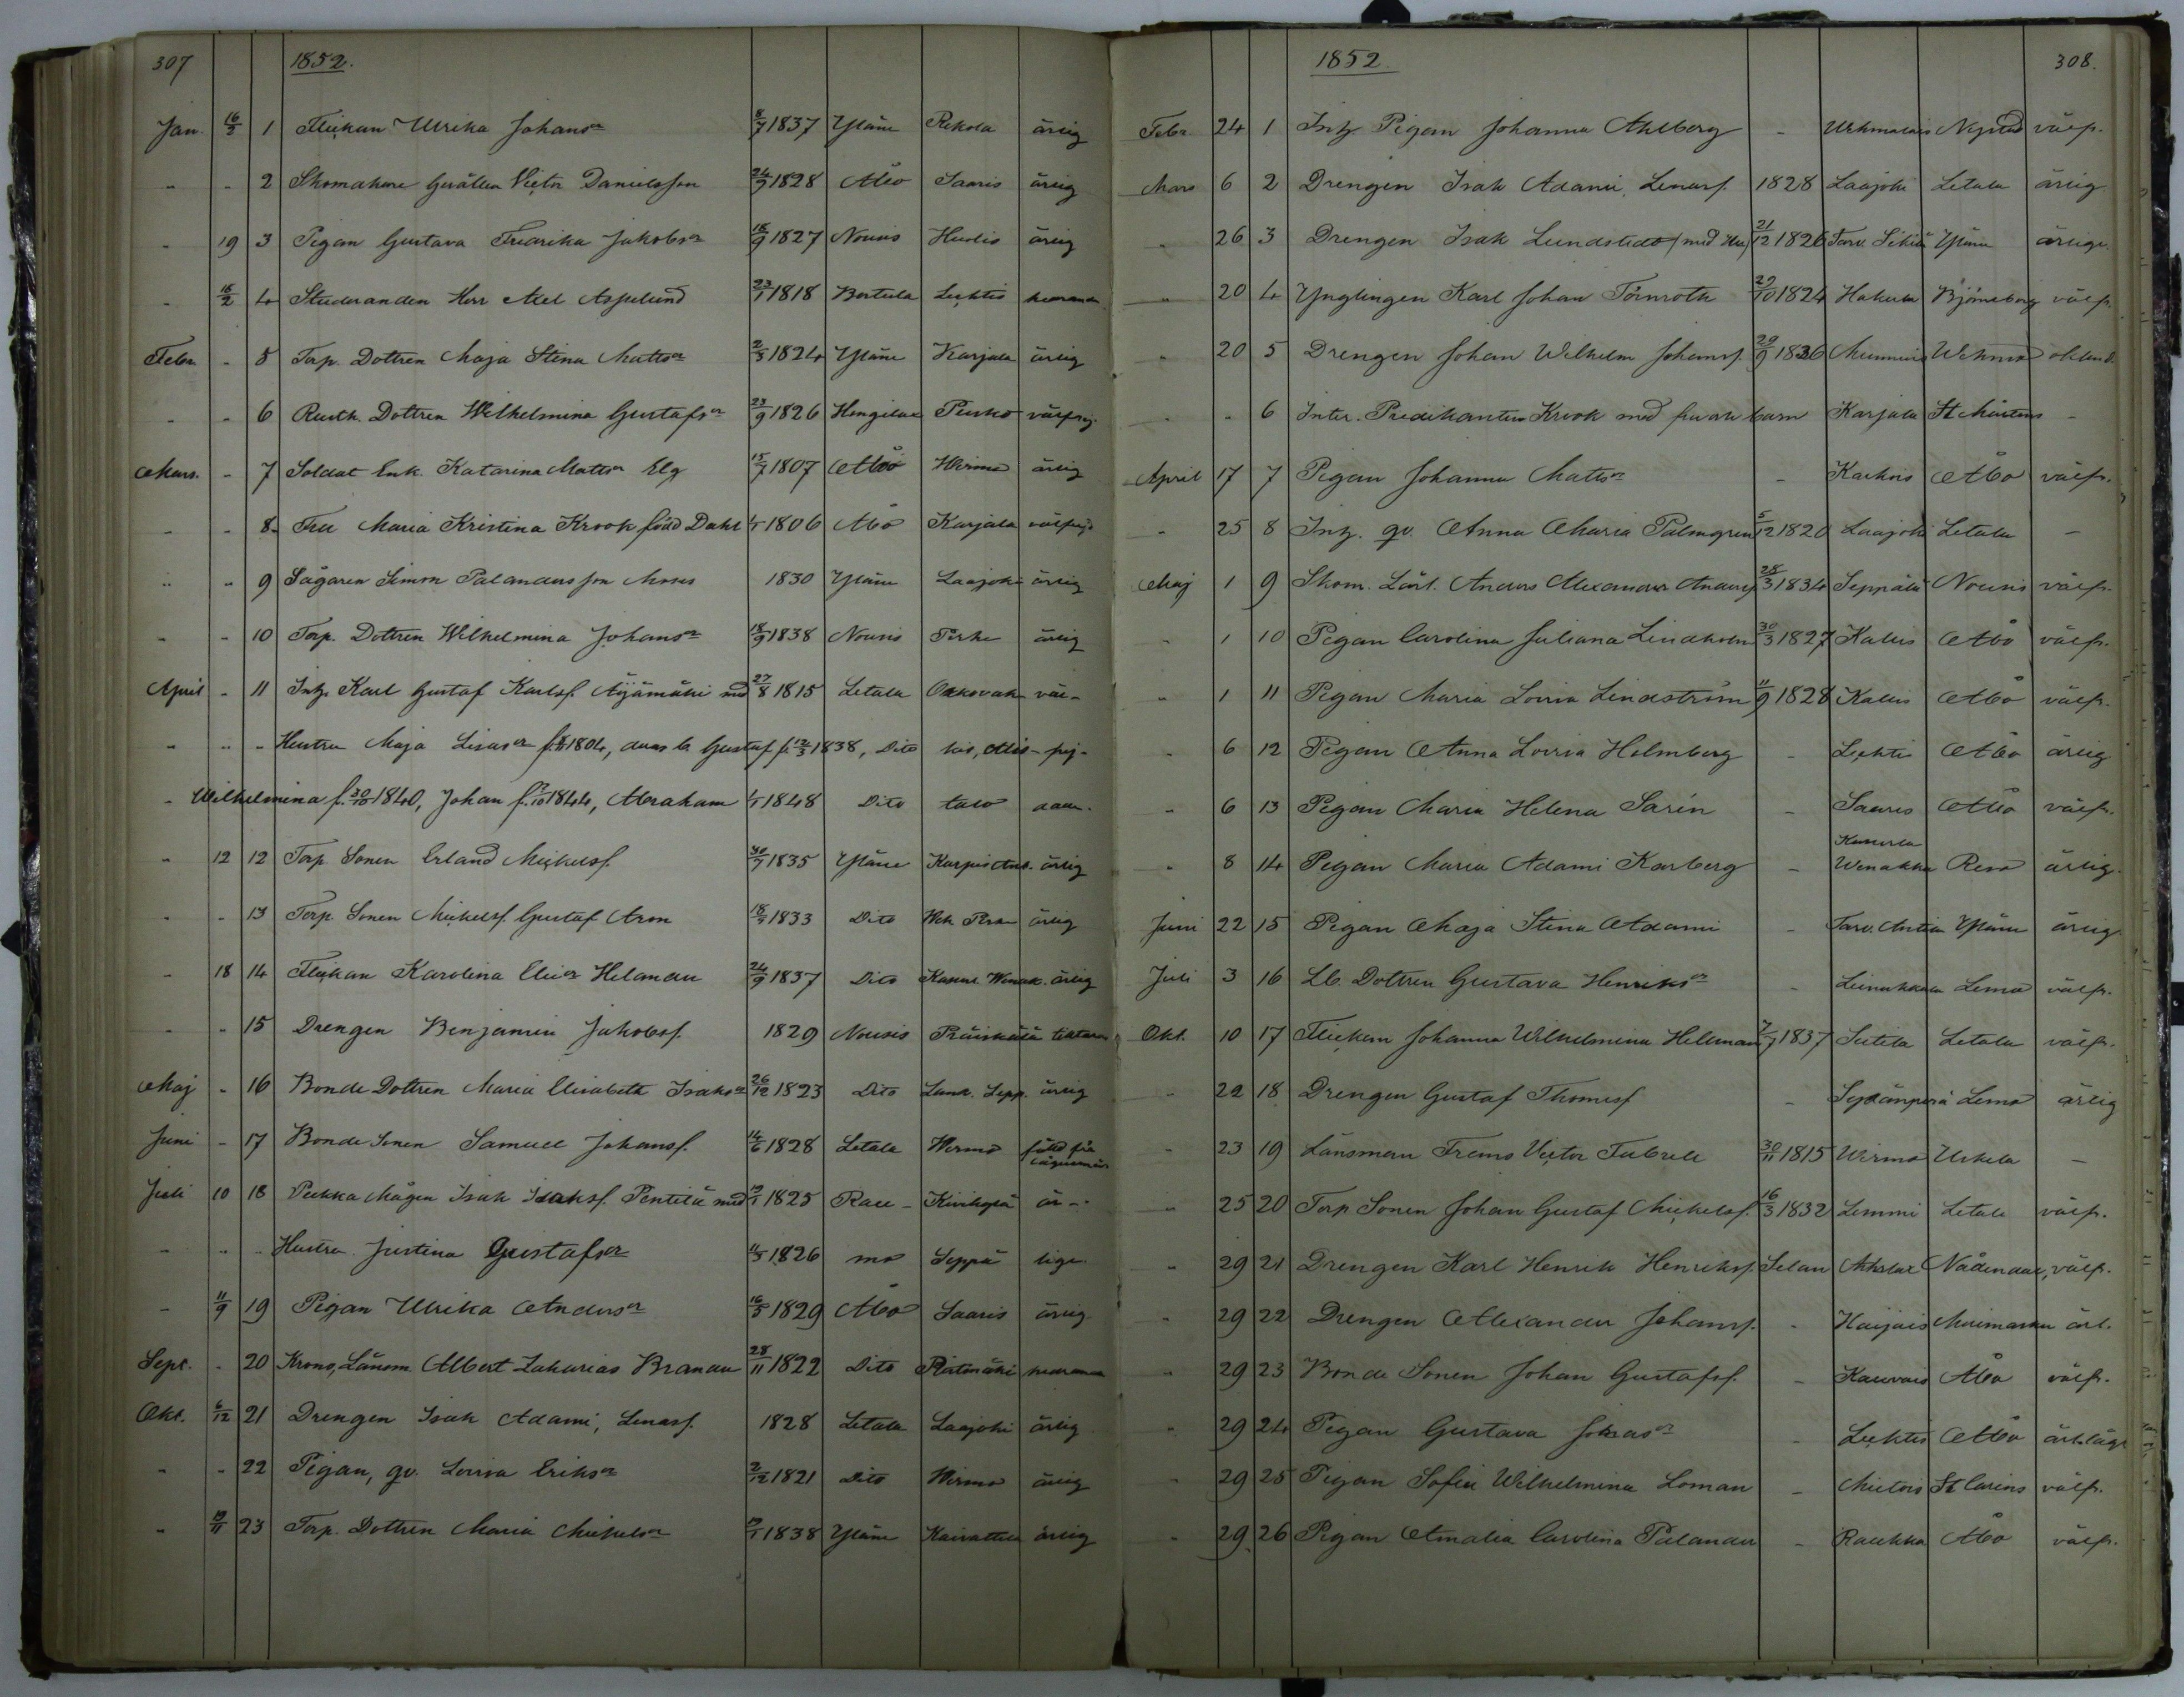 307 1852.
Jan. 16/2 1 Flickan Ulrika Johansr 8/7 1837 Yläne Rekola ärlig
" - 2 Skomakare Gesällen Victor Danielsson 24/9 1828 Åbo Saaris ärlig
- 19 3 Pigan Gustava Fredrika Jakobsr 18/9 1827 Nousis Hudis ärlig
- 16/2 4 Studeranden Herr Axel Asplund 23/1 1818 Bertula Lechtis
Febr. - 5 Torp. Dottren Maja Stina Mattsr 2/3 1824 Yläne Karjala ärlig
- - 6 Rusth. Dottren Wilhelmina Gustafsr 23/9 1826 Hinnerjoki välfrejd
Mars. - 7 Soldat Enk. Katarina Mattsr Elg 15/7 1807 Åbo Wirmo ärlig
- - 8 Fru Maria Kristina Krook född Dahl 1/1 1806 Åbo Karjala välfrejd
" " 9 Sågaren Simon Palandersson Moses 1830 Yläne Laajoki ärlig
- - 10 Torp. Dottren Wilhelmina Johansr 18/9 1838 Nousis Pirke ärlig
April - 11 Inh. Karl Gustaf Karlsf. Äijämäki med 27/8 1815 Letala väl-
" " " Hustru Maja Lisasr 1804, deras b. Gustaf f. 12/3 1838, Dito
- Wilhelmina f. 30/10 1840, Johan f. 1844, Abraham 1/1 1848 Dito talo
- 12 12 Torp. Sonen Erland Mickelsf. 30/7 1835 Yläne ärlig
- - 13 Torp. Sonen Mickelsf. Gustaf Aron 18/7 1833 Dito ärlig
- 18 14 Flickan Karolina Eliær Helander 24/9 1837 Dito ärlig
- - 15 Drengen Benjamin Jakobsf. 1829 Nousis
Maj - 16 Bonde Dottren Maria Elisabeth Isaksr 26/12 1823 Dito Lank. Sepp. ärlig
Juni - 17 Bonde Sonen Samuel Johansf. 14/6 1828 Letala Wirmo
Juli 10 18 Pukka Mågen Isak Isaksf. Penttilä med 1825 Rau- Kivikylä är-
- " " Hustru Justina Gustafsr 1826 mo Seppä lige.
- 11/9 19 Pigan Ulrika Andersr 16/5 1829 Åbo Saaris ärlig
Sept. - 20 Krono, Länsm. Albert Zakarias Brander 28/11 1822 Dito
Okt. 6/12 21 Drengen Isak Adami, Lenasf. 1828 Letala Laajoki ärlig
- - 22 Pigan, qv. Lovisa Eriksr 2/12 1821 Dito Wirmo ärlig
- 23 Torp. Dottren Maria Mickelsr 1838 Yläne ärlig
1852. 308.
Febr 24 1 Inh Pigan Johanna Ahlberg - Nystad välfr.
Mars 6 2 Drengen Isak Adami, Lenasf. 1828 Laajoki Letala ärlig
- 26 3 Drengen Isak Lundstedt (med Hu) 21/12 1826 Yläne ärlige
" 20 4 Ynglingen Karl Johan Törnroth 29/10 1824 Hakula Björneborg välfr.
" 20 5 Drengen Johan Wilhelm Johansf. 29/9 1836 Wehmo
- " 6 Inter. Predikanten Krook med fru och barn Karjala St Mårtens -
April 17 7 Pigan Johanna Mattsr - Karkois Åbo välfr.
- 25 8 Inh. qv. Anna Maria Palmgren 5/12 1820 Laajoki Letala -
Maj 1 9 Skom. Lärl. Anders Alexander Andersf 28/3 1834 Seppälä Nousis välfr.
- 1 10 Pigan Carolina Juliana Lindholm 30/3 1827 Kallis Åbo välfr.
" 1 11 Pigan Maria Lovisa Lindström 11/9 1828 Kallis Åbo välfr.
- 6 12 Pigan Anna Lovisa Holmberg - Lechti Åbo ärlig
- 6 13 Pigan Maria Helena Sarin - Saaris Åbo välfr.
- 8 14 Pigan Maria Adami Karberg - Reso ärlig.
Juni 22 15 Pigan Maja Stina Adami - Tarv. Antin Yläne ärlig
Juli 3 16 Lb. Dottren Gustava Henriksr - Leinakkala Lemo välfr.
Okt. 10 17 Flickan Johanna Wilhelmina Hellman 7/7 1837 Sutela Letala välfr.
- 22 18 Drengen Gustaf Thomasf - Sydänperä Lemo ärlig
- 23 19 Länsman Frans Victor Fabrele 30/11 1815 Wirmo Urkela -
- 25 20 Torp. Sonen Johan Gustaf Mickelsf. 16/3 1832 Lemmi Letala välfr.
" 29 21 Drengen Karl Henrik Henriksf. Selan Nådendal, välfr.
- 29 22 Drengen Alexander Johansf. - Haijais Merimasku ärl.
" 29 23 Bonde Sonen Johan Gustafsf. - Kauvais Åbo välfr.
" 29 24 Pigan Gustava Jonasr - Lechtis Åbo
- 29 25 Pigan Sofia Wilhelmina Loman - Mietois St Carins välfr.
- 29 26 Pigan Amalia Carolina Palander - Raukka Åbo välfr.